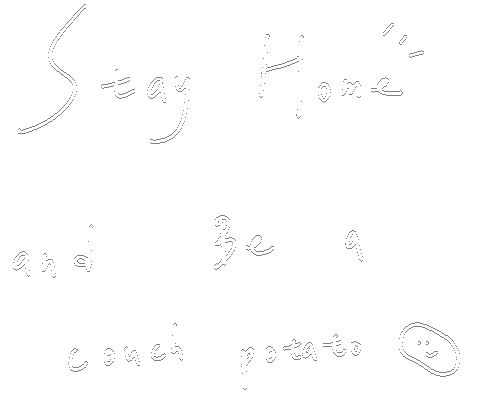 Stay Home
and Be a
couch potato